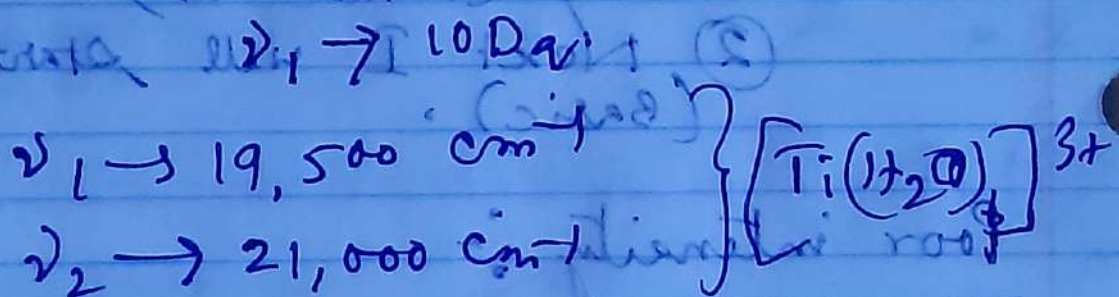 ν₁ → 10 Dq
ν₁ → 19,500 cm⁻¹
ν₂ → 21,000 cm⁻¹ } [Ti(H₂O)₆]³⁺